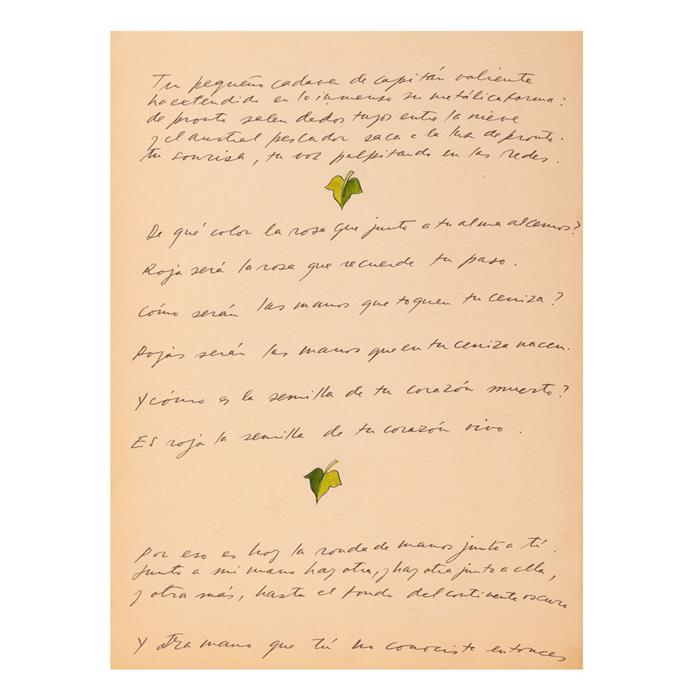 Tu pequeño cadaver de capitán valiente
ha extendido en lo inmenso su metálica forma:
de pronto salen dedos tuyos entre la nieve
y el austral pescador saca a la luz de pronto
tu sonrisa, tu voz palpitando en las redes.
De qué color la rosa que junto a tu alma alcemos?
Roja será la rosa que recuerde tu paso.
Cómo serán las manos que toquen tu ceniza?
Rojas serán las manos que en tu ceniza nacen.
Y cómo es la semilla de tu corazón muerto?
Es roja la semilla de tu corazón vivo.
Por eso es hoy la ronda de manos junto a tí.
Junto a mi mano hay otra, y hay otra junto a ella,
y otra más, hasta el fondo del continente oscuro
Y otra mano que tú no conociste entonces